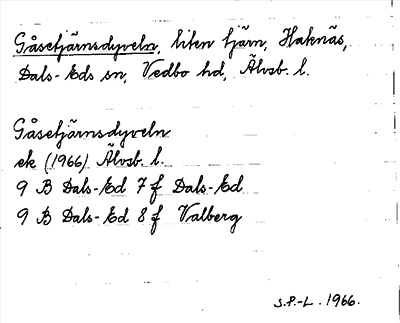 Gåsetjärnsdyveln, liten tjärn, Haknäs,
Dals-Eds sn, Vedbo hd, Älvsb. l.
Gåsetjärnsdyveln
ek (1966) Älvsb. l.
9 B Dals-Ed 7 f Dals-Ed
9 B Dals-Ed 8 f Valberg
S.P.-L. 1966.